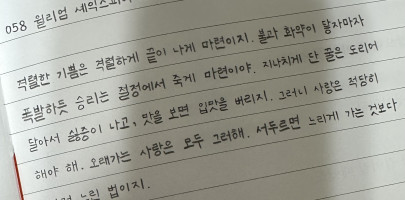 058 윌리엄 셰익스피
격렬한 기쁨은 격렬하게 끝이 나게 마련이지. 불과 화약이 닿자마자
폭발하듯 승리는 절정에서 죽게 마련이야. 지나치게 단 꿀은 도리어
달아서 싫증이 나고, 맛을 보면 입맛을 버리지. 그러니 사랑은 적당히
해야 해. 오래가는 사랑은 모두 그러해. 서두르면 느리게 가는 것보다
느린 법이지.